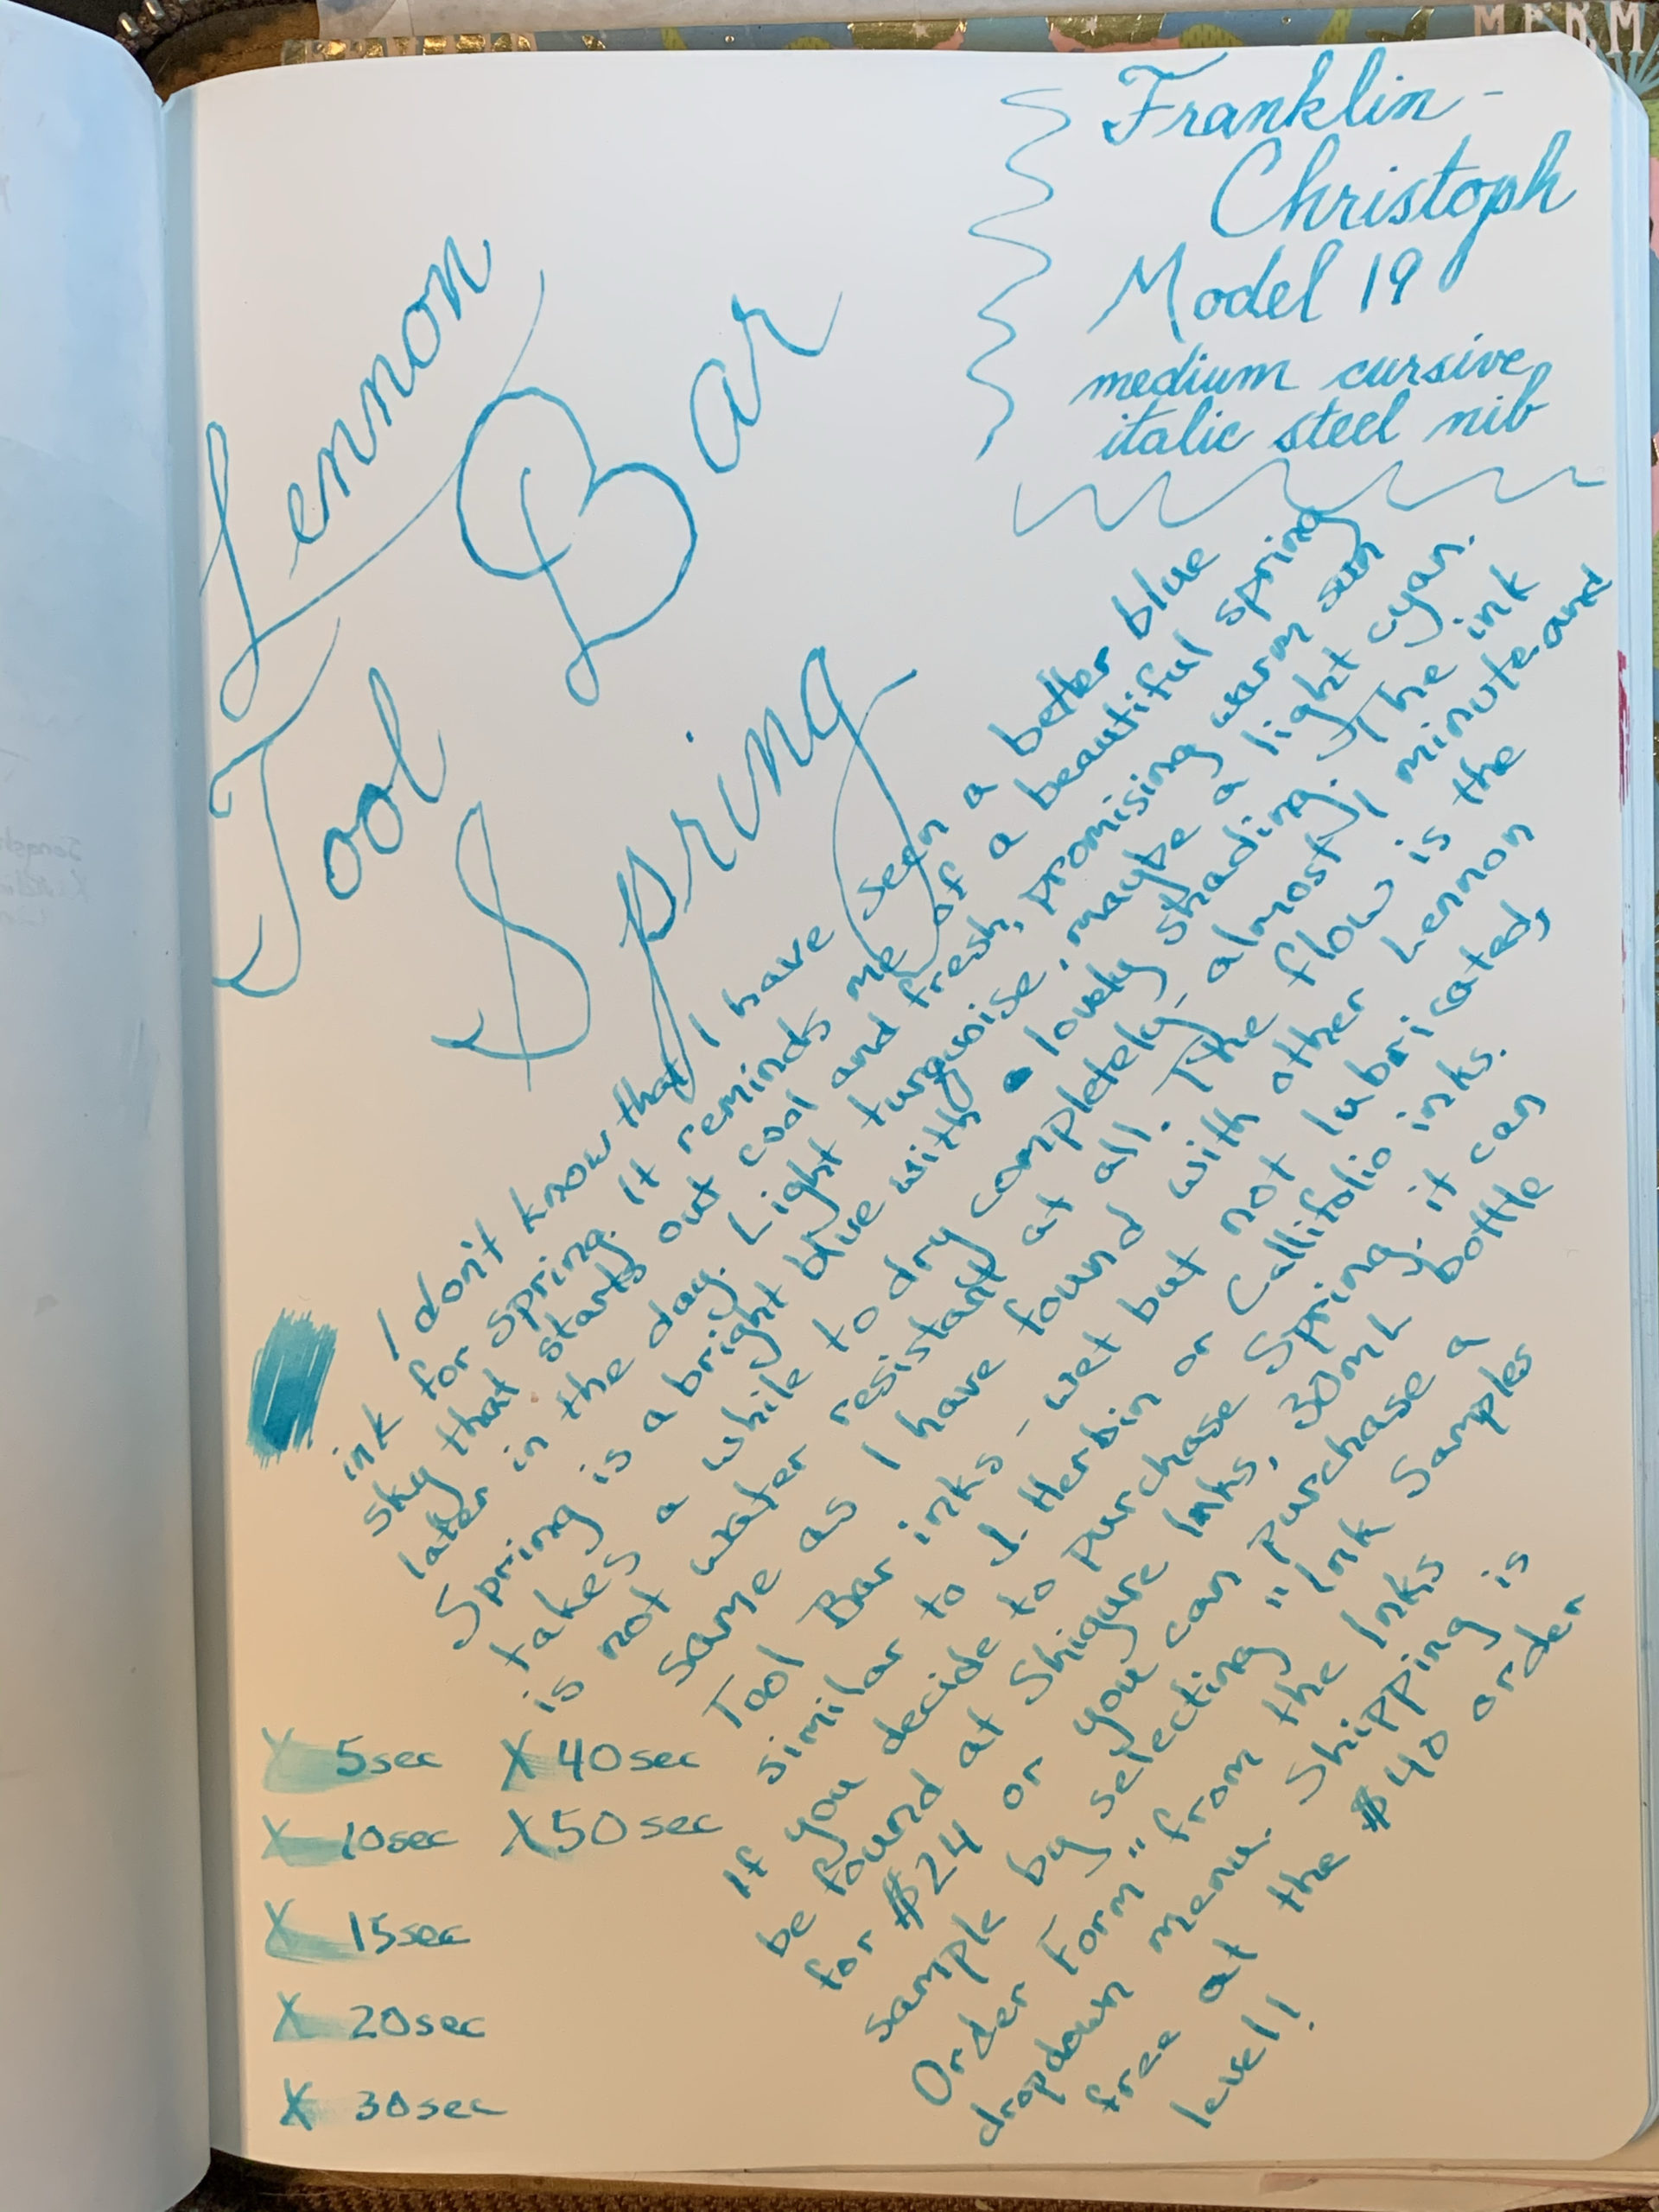 Lennon
Tool Bar
Spring
Franklin-
Christoph
Model 19
medium cursive
italic steel nib
I don't know that I have seen a better blue
ink for spring. It reminds me of a beautiful spring
sky that starts out cool and fresh, promising warm sun
later in the day. Light turquoise, maybe a light cyan.
Spring is a bright blue with a lovely shading. The ink
takes a while to dry completely - almost 1 minute and
is not water resistant at all. The flow is the
same as I have found with other Lennon
Tool Bar inks - wet but not lubricated,
similar to J. Herbin or Callifolio inks.
If you decide to purchase Spring, it can
be found at Shigure Inks, 30mL bottle
for $24 or you can purchase a
sample by selecting "Ink Samples
Order Form" from the Inks
dropdown menu. Shipping is
free at the $40 order
level!
X 5sec
X 10sec
X 15sec
X 20sec
X 30sec
X 40sec
X 50sec
MERM